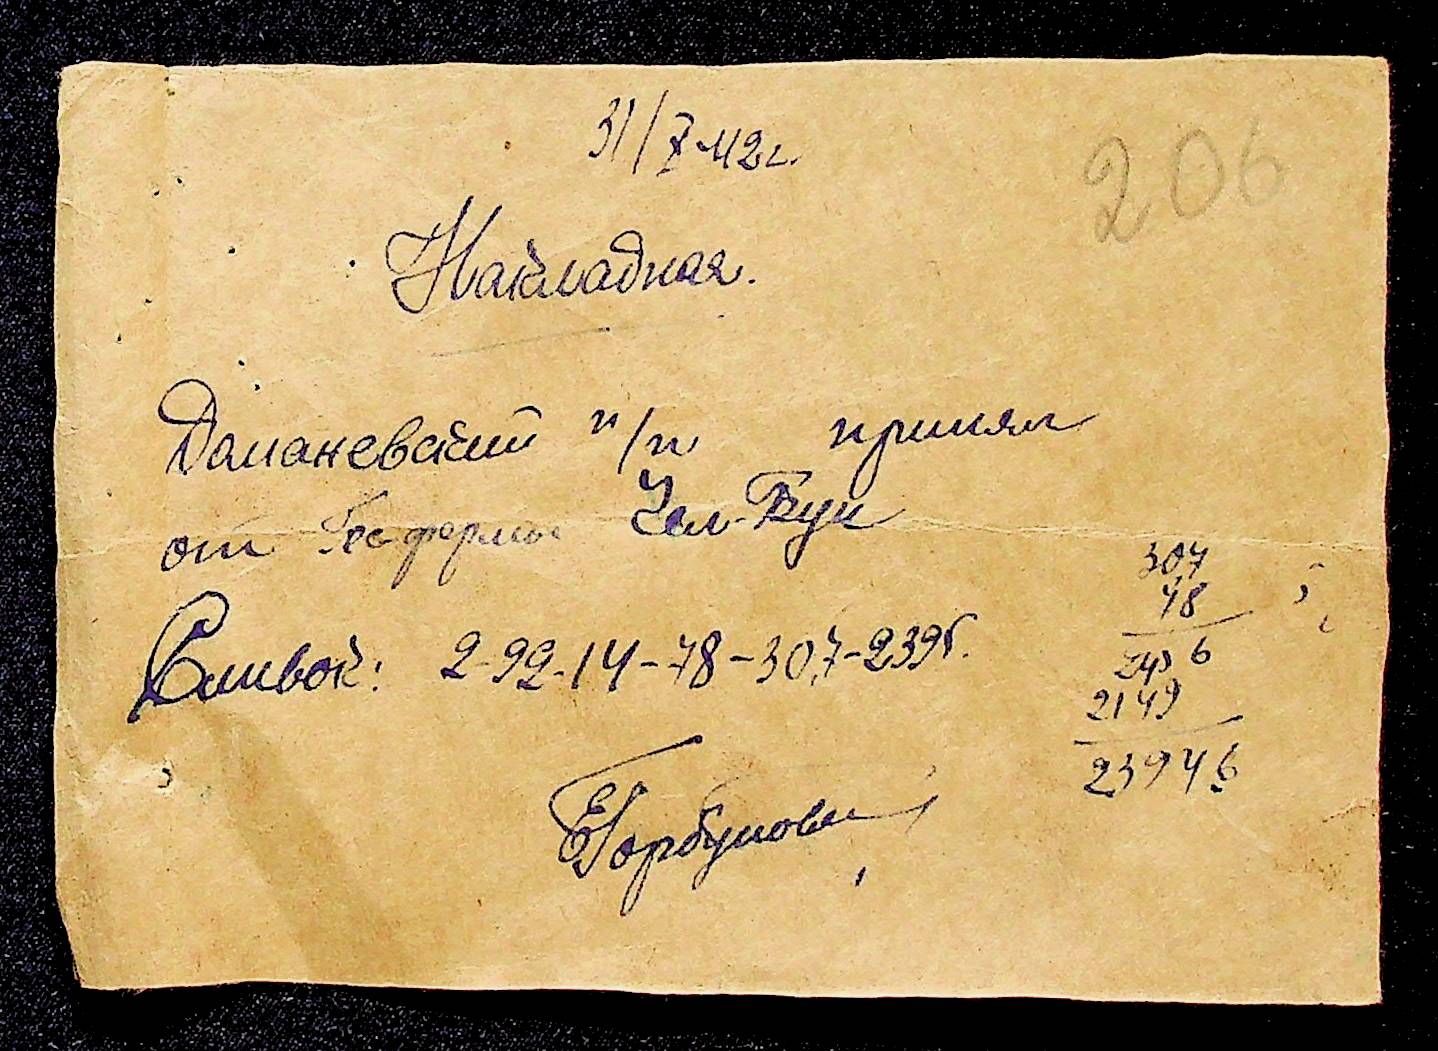 31/7-42г.
206
Накладная.
Доманевский п/п принял
от Гос фермы
Сливок: 2-92-14-78-307-2395.
307
78
2456
2149
23946
ЕГорбунова